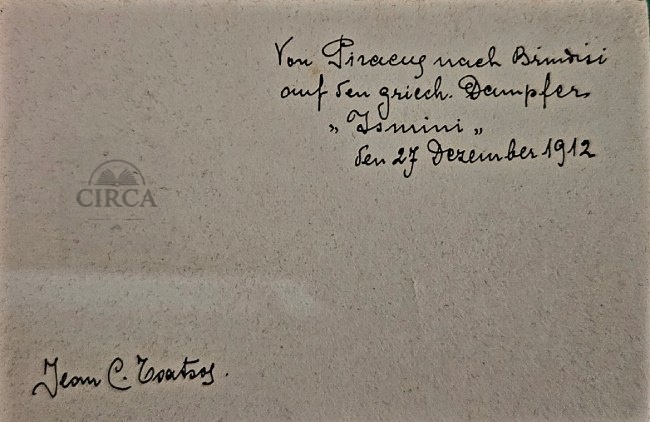 Von Piraeus nach Brindisi
auf den griech. Dampfer
„ Ismini „
den 27 Dezember 1912
CIRCA
Jean C. Tsatsos.